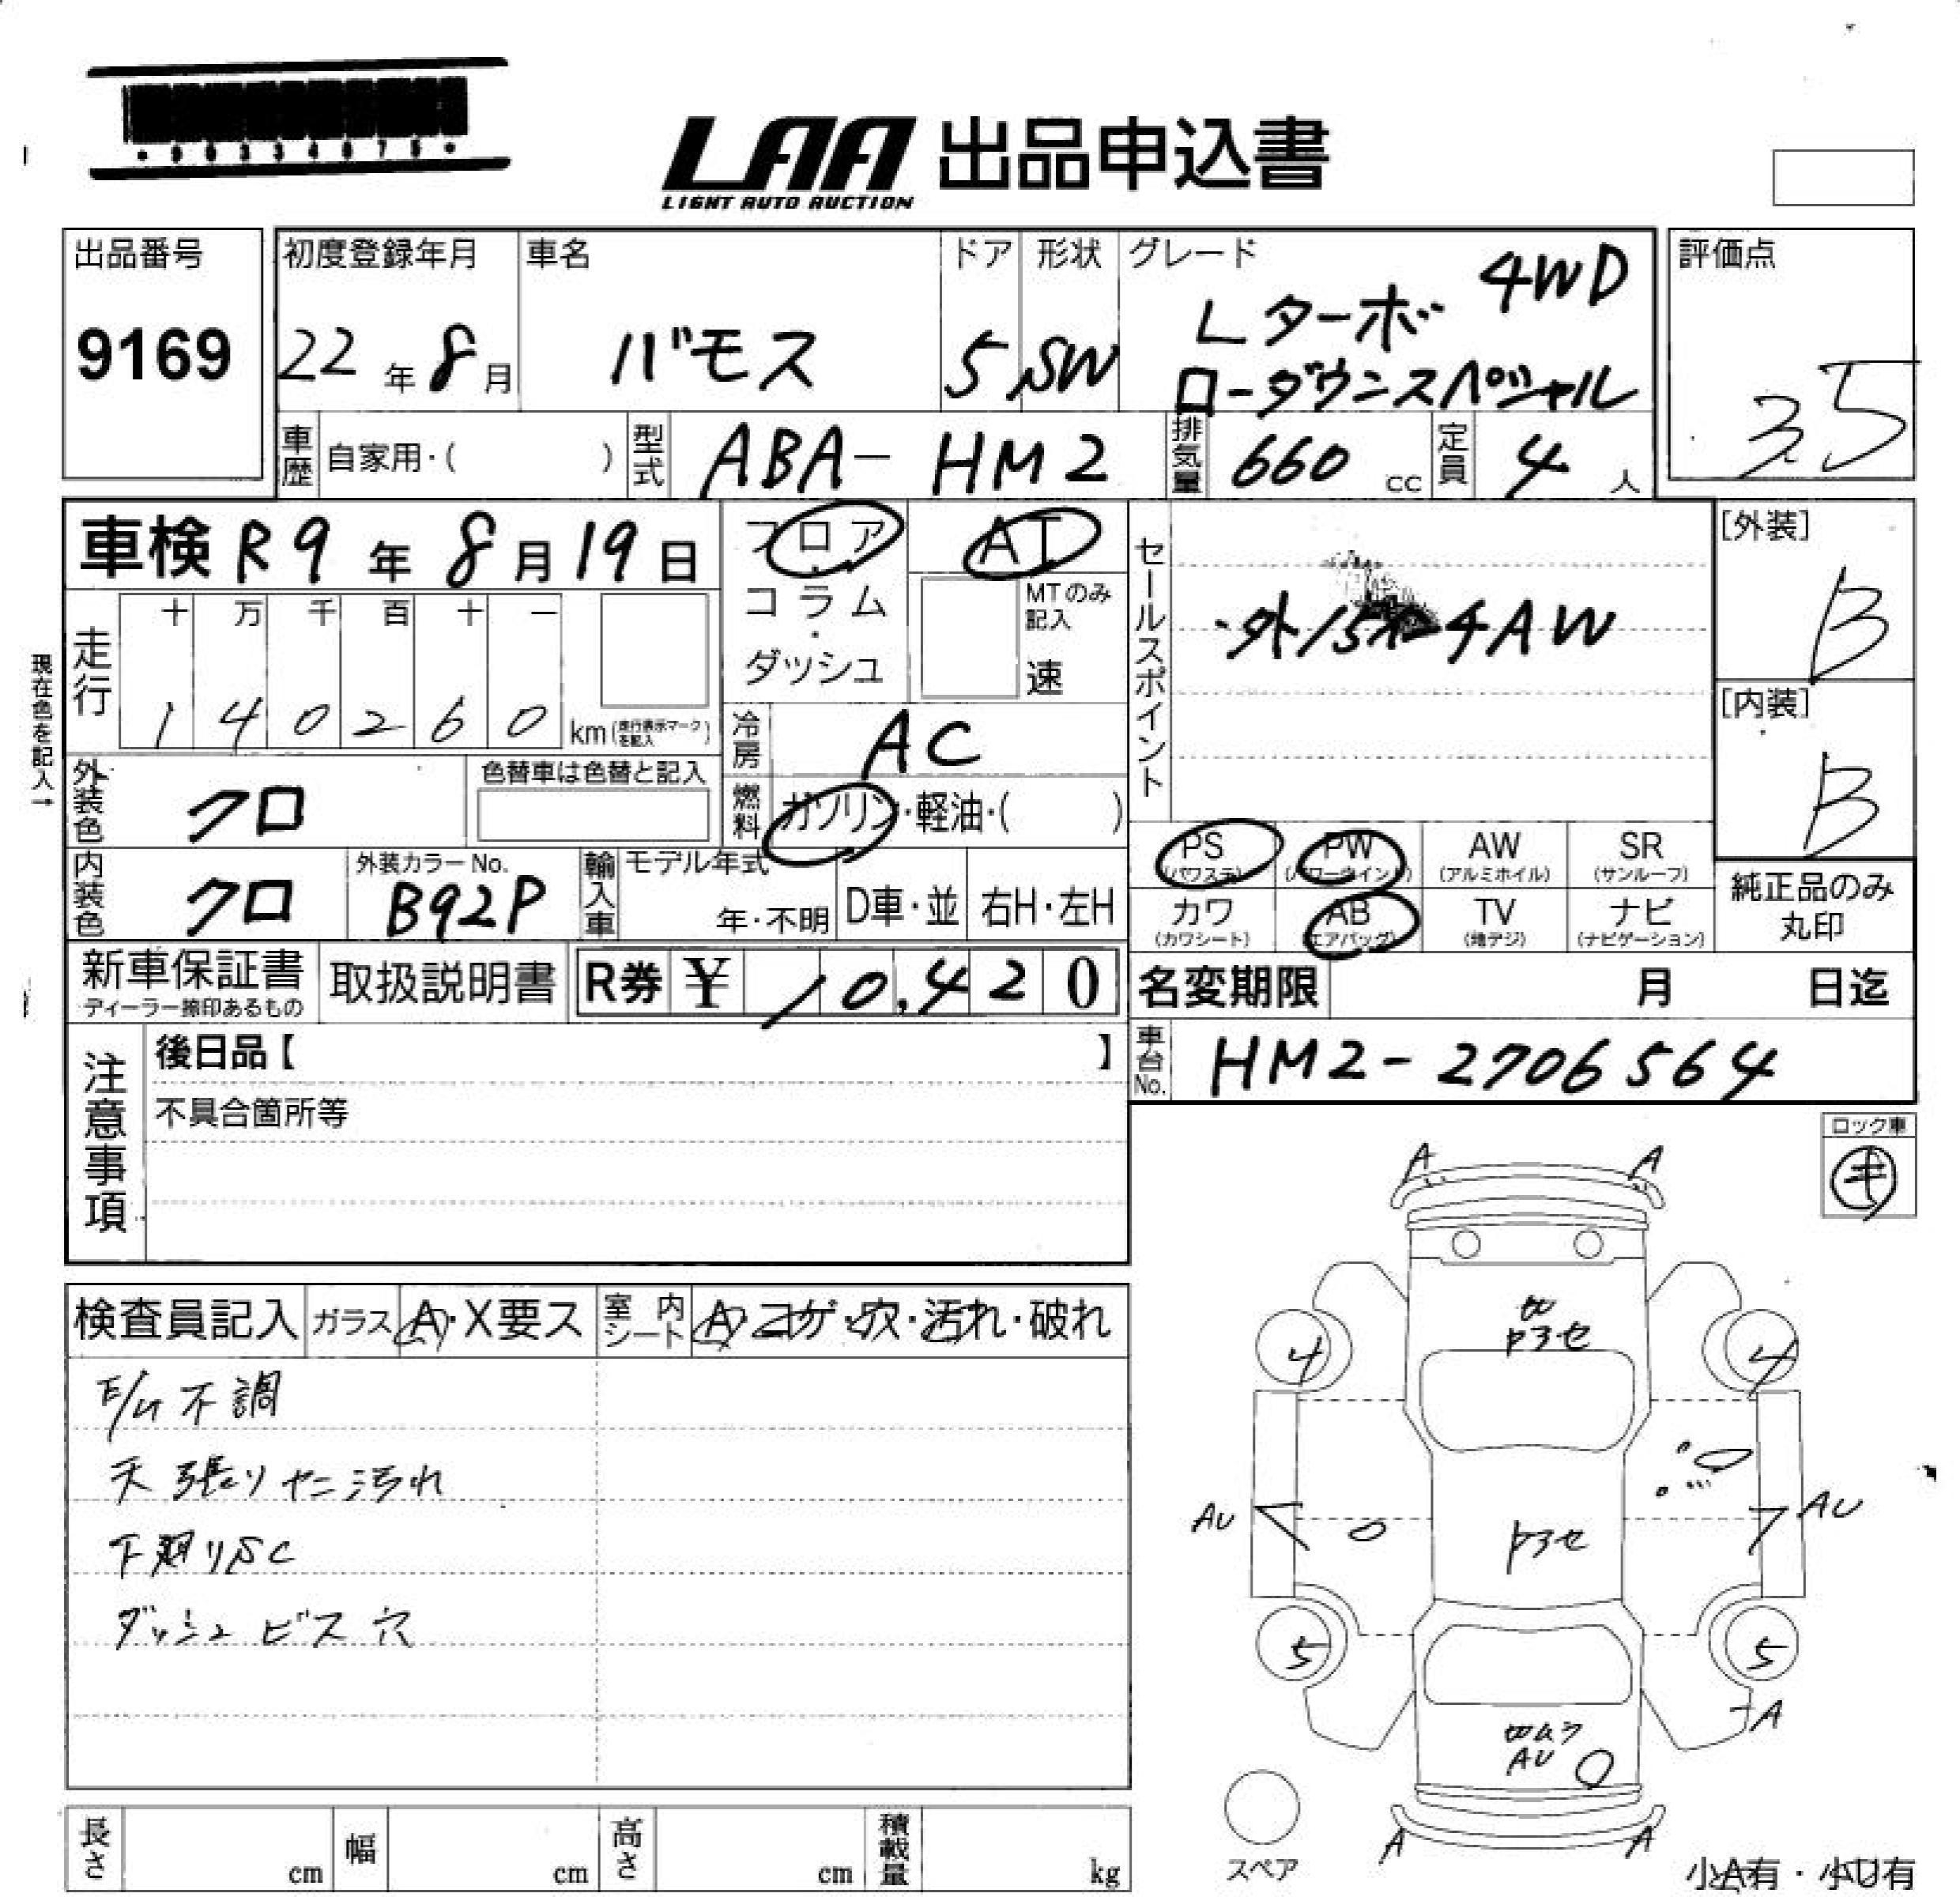 LAA 出品申込書
LIGHT AUTO AUCTION
出品番号
9169
初度登録年月
22年8月
車名
バモス
ドア
5
形状
SW
グレード
4WD
Lターボ
ローダウンスペシャル
評価点
3.5
車歴 自家用・( )
型式 ABA-HM2
排気量 660 cc
定員 4 人
車検 R9年8月19日
フロア・コラム・ダッシュ
AT
MTのみ記入
速
セールスポイント
・外15インチAW
[外装]
B
[内装]
B
現在色を記入→
走行
十 万 千 百 十 一
1 4 0 2 6 0 km(走行表示マークを記入)
冷房 AC
外装色 クロ
色替車は色替と記入
燃料 ガソリン・軽油・( )
内装色 クロ
外装カラーNo.
B92P
輸入車
モデル年式
年・不明
D車・並
右H・左H
PS (パワステ)
PW (パワーウインド)
AW (アルミホイル)
SR (サンルーフ)
カワ (カワシート)
AB (エアバッグ)
TV (地デジ)
ナビ (ナビゲーション)
純正品のみ丸印
新車保証書
ディーラー捺印あるもの
取扱説明書
R券 ¥ 10,420
名変期限 月 日迄
車台No. HM2-2706564
注意事項
後日品【 】
不具合箇所等
ロック車
キ
検査員記入
ガラス A・X要ス
室内シート A・コゲ・穴・汚れ・破れ
E/G不調
天張りヤニ汚れ
下廻りSC
ダッシュビス穴
A A
4 4
AU AU
5 5
A
AU
A A
スペア
小A有・小U有
長さ cm
幅 cm
高さ cm
積載量 kg